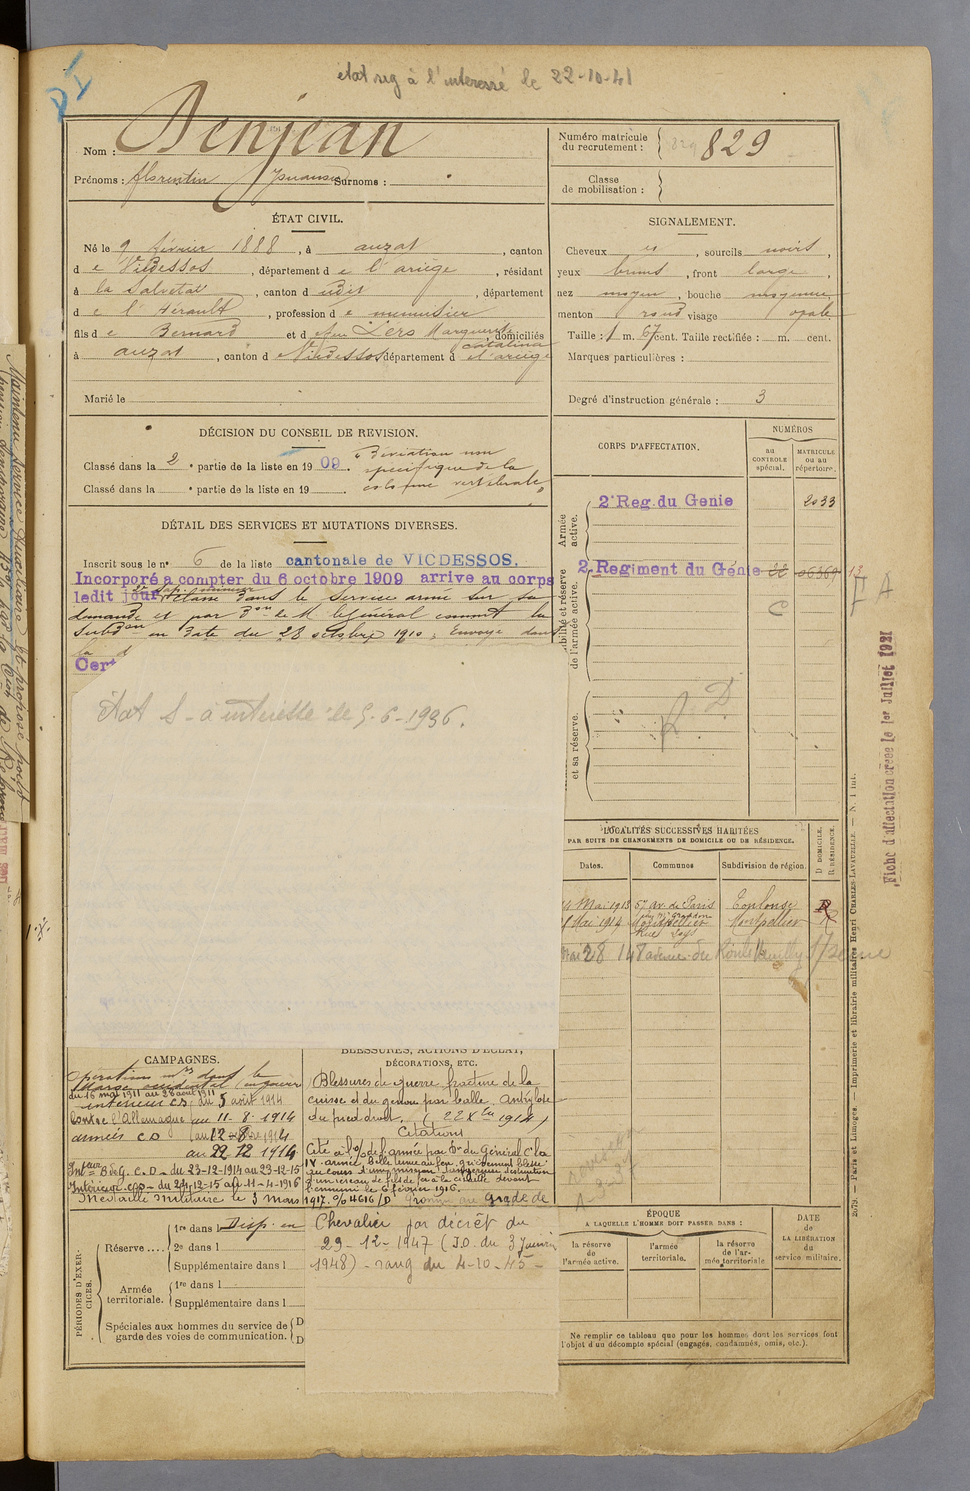 état reg à l'interessé le 22-10-41
DI
Nom : Denjean
Prénoms : florentin Surnoms :
Numéro matricule
du recrutement : 829 829
Classe
de mobilisation :
ÉTAT CIVIL.
Né le 9 février 1888, à auzat, canton
d e Vicdessos, département d e l'ariège, résidant
à la Salvetat, canton d udit, département
d e l'Hérault, profession d e menuisier
fils d e Bernard et d e feu Lers Marguerite, domiciliés
catalina
à auzat, canton d e Vicdessos département d e l'ariège
Marié le
SIGNALEMENT.
Cheveux et, sourcils noirs,
yeux bruns, front large,
nez moyen, bouche moyenne
menton rond visage opale
Taille : 1 m. 67 cent. Taille rectifiée : m. cent.
Marques particulières :
Degré d'instruction générale : 3
DÉCISION DU CONSEIL DE REVISION.
Classé dans la 2e partie de la liste en 1909. "Déviation non
spécifique de la
colonne vertébrale"
Classé dans la e partie de la liste en 19
DÉTAIL DES SERVICES ET MUTATIONS DIVERSES.
Inscrit sous le n° 6 de la liste cantonale de VICDESSOS.
Incorporé a compter du 6 octobre 1909 arrive au corps
ledit jour Classé dans le service armé sur sa
demande et par Don de M le Général commt la
Subdon en date du 28 octobre 1910. Envoyé dans
la d
Cert
Etat S - à interessé le 5-6-1936.
CORPS D'AFFECTATION.
NUMÉROS
au
CONTROLE
spécial.
MATRICULE
ou au
répertoire.
Armée
active.
2e Reg. du Genie 2033
de l'armée active.
2e Regiment du Génie 22 06369
C
F A
R. D
et sa réserve.
LOCALITÉS SUCCESSIVES HABITÉES
PAR SUITE DE CHANGEMENTS DE DOMICILE OU DE RÉSIDENCE.
Dates. Communes Subdivision de région. D DOMICILE. R RÉSIDENCE.
Mai 1913 57 av. de Paris Toulouse R
Mai 1914 Montpellier Montpellier R
Mai 28 148 avenue du Roule Neuilly s/ Seine
Fiche d'affectation créée le 1er Juillet 1921
2679. — Paris et Limoges. — Imprimerie et librairie militaires Henri CHARLES-LAVAUZELLE. — N. 1 int.
CAMPAGNES.
Opérations mres dans le
Maroc occidental en guerre
du 16 mai 1911 au 28 août 1911
intérieur CS du 5 août 1914
Contre l'Allemagne au 11-8-1914
armées CD au 12-8-1914
au 22-12-1914
Intr B de G. C.D - du 23-12-1914 au 23-12-15
Intérieur CS - du 24-12-15 au 11-4-1916
Médaille Militaire le 3 Mars 1917. % 4616/D Promu au grade de
BLESSURES, ACTIONS D'ÉCLAT,
DÉCORATIONS, ETC.
Blessures de guerre fracture de la
cuisse et du genou par balle. Ankylose
du pied droit. (22 Xbre 1914)
Citations
Cité à l'% de l'armée par Dr du Général Ct la
IV armée, belle tenue au feu, grièvement blessé
au cours d'une mission dangereuse destruction
d'un réseau de fils de fer à la cisaille devant
l'ennemi le 6 février 1916.
Chevalier par décret du
29-12-1947 (J.O. du 3 Janvier
1948) - rang du 4-10-45 -
PÉRIODES D'EXERCICES.
Réserve.... 1re dans l Disp. en
2e dans l
Supplémentaire dans l
Armée
territoriale. 1re dans l
Supplémentaire dans l
Spéciales aux hommes du service de
garde des voies de communication. D
D
A-9-37
ÉPOQUE
A LAQUELLE L'HOMME DOIT PASSER DANS :
la réserve
de
l'armée active.
l'armée
territoriale.
la réserve
de l'ar-
mée territoriale
DATE
de
LA LIBÉRATION
du
service militaire.
Ne remplir ce tableau que pour les hommes dont les services font
l'objet d'un décompte spécial (engagés, condamnés, omis, etc.).